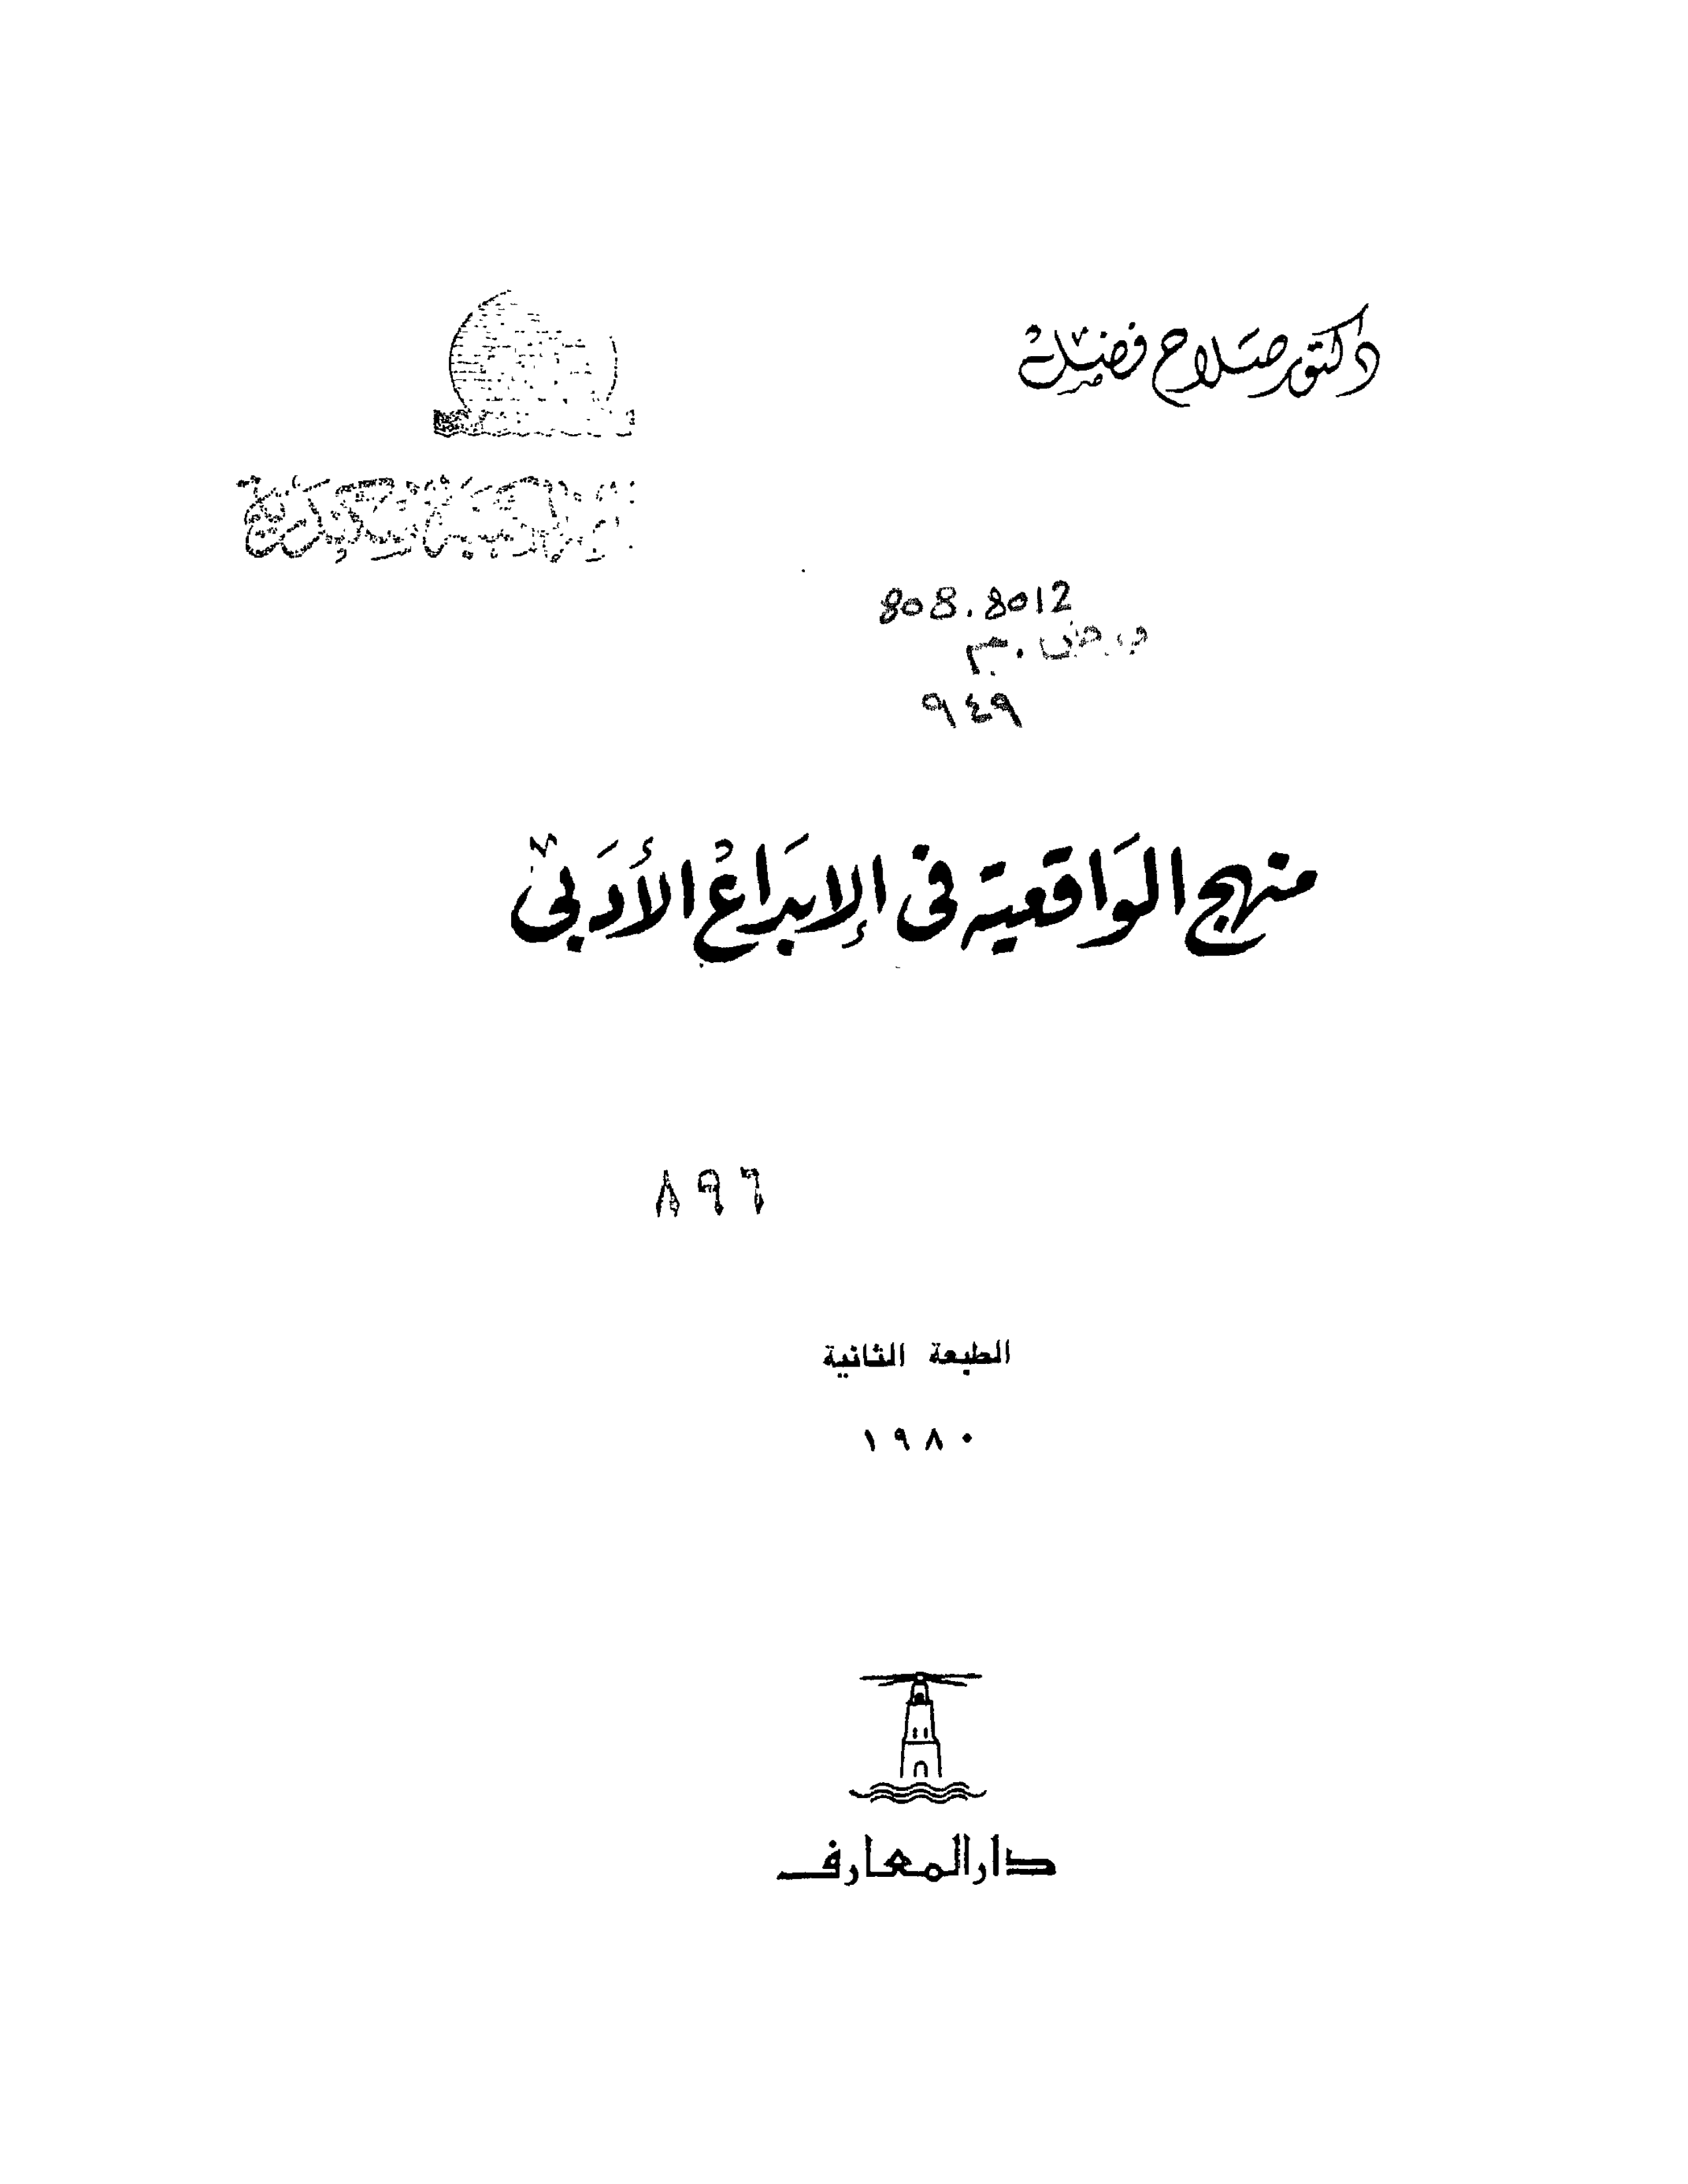 دكتور صلاح فضل
808.8012
٩٤٩
منهج الواقعية فى الإبداع الأدبى
٨٩٦
الطبعة الثانية
١٩٨٠
دار المعارف